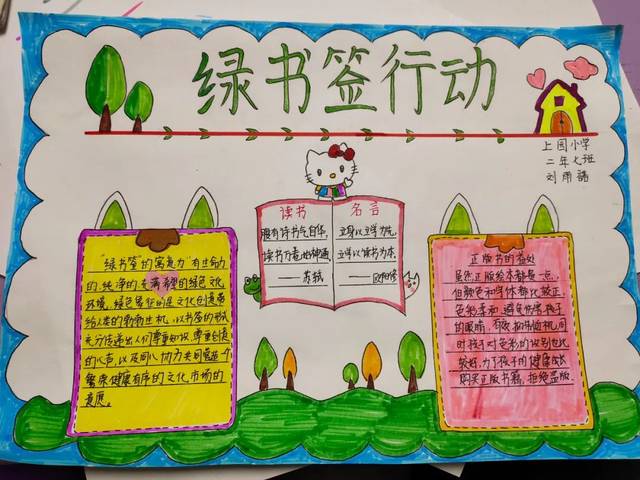 绿书签行动
上园小学
二年七班
刘雨
读书 名言
腹有诗书气自华,
读书万卷始通神
——苏轼
立身以立学为先,
立学以读书为本
——欧阳修
"绿书签的寓意为"有生命力
的、纯净的、充满希望的绿色文化
环境,绿色象征的是文化创造带
给人类的勃勃生机,以书签的形式
充分传递出人们尊重知识、尊重创造
的心声,以及同心协力共同营造一个
繁荣健康有序的文化市场的
意愿。
正版书的好处
虽然正版绘本都是一点,
但颜色和字体都比较正,
色彩柔和,避免伤害孩子
的眼睛,有效
时孩子对色彩的识别也比
较好,为了孩子的健康成长
购买正版书籍,拒绝盗版.